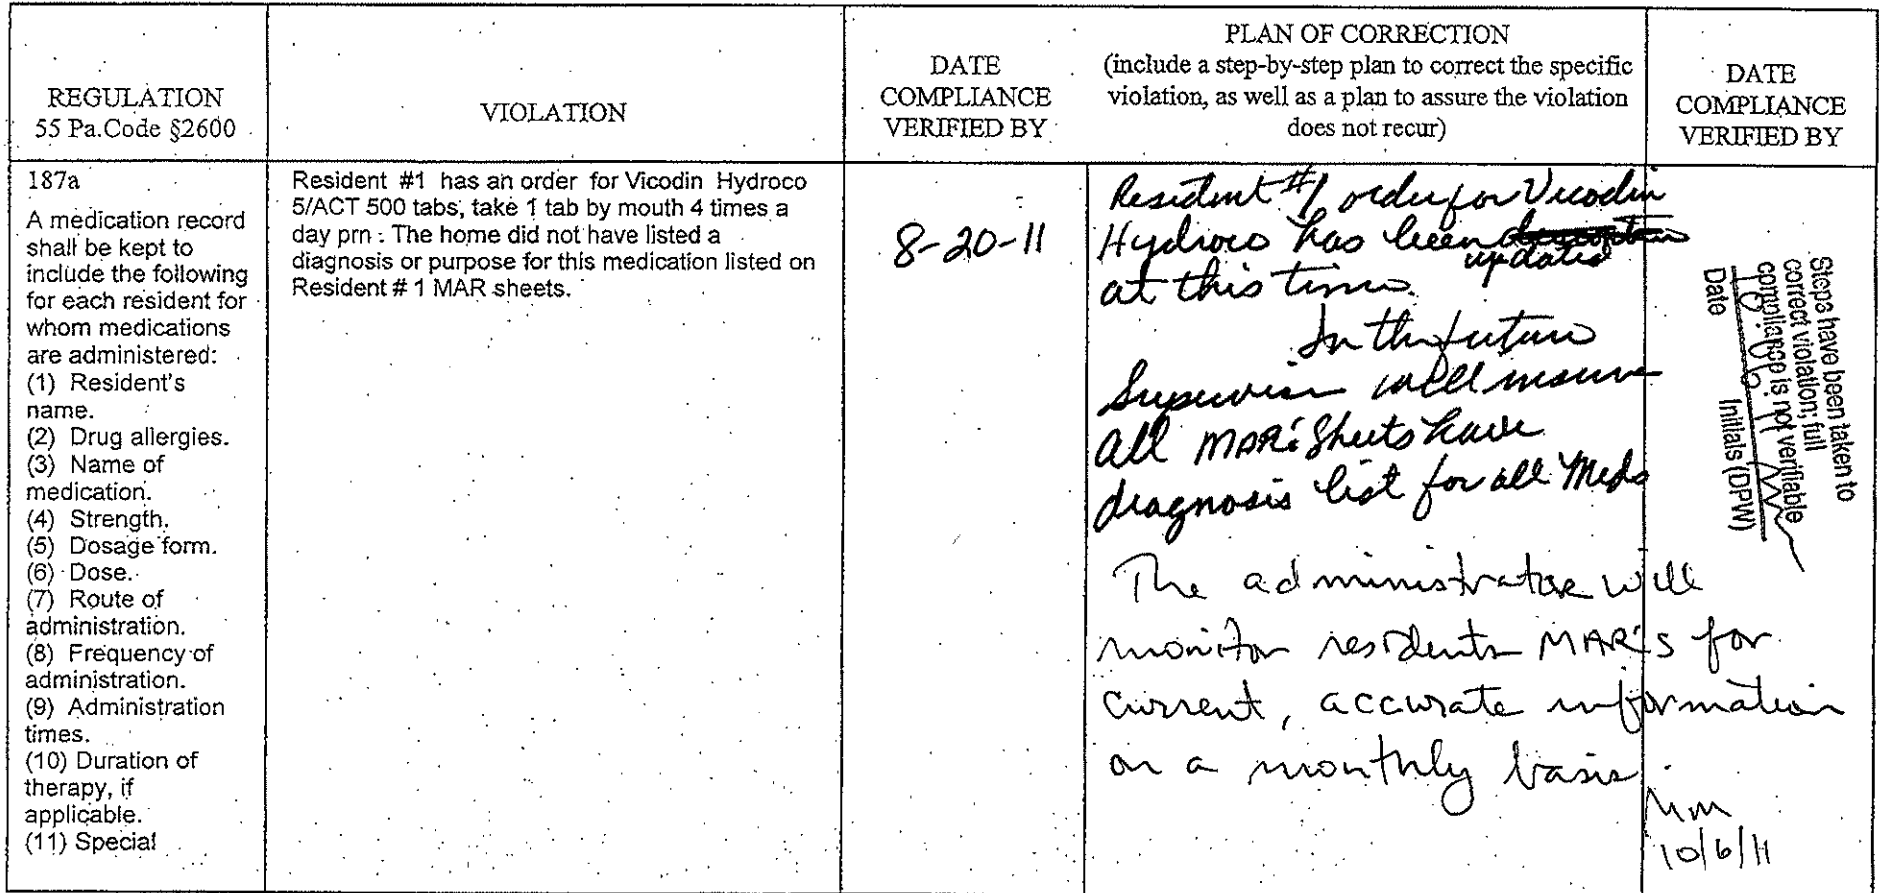 REGULATION
55 Pa.Code §2600
VIOLATION
DATE
COMPLIANCE
VERIFIED BY
PLAN OF CORRECTION
(include a step-by-step plan to correct the specific
violation, as well as a plan to assure the violation
does not recur)
DATE
COMPLIANCE
VERIFIED BY
187a
A medication record
shall be kept to
include the following
for each resident for
whom medications
are administered:
(1) Resident's
name.
(2) Drug allergies.
(3) Name of
medication.
(4) Strength.
(5) Dosage form.
(6) Dose.
(7) Route of
administration.
(8) Frequency of
administration.
(9) Administration
times.
(10) Duration of
therapy, if
applicable.
(11) Special
Resident #1 has an order for Vicodin Hydroco
5/ACT 500 tabs, take 1 tab by mouth 4 times a
day prn. The home did not have listed a
diagnosis or purpose for this medication listed on
Resident # 1 MAR sheets.
8-20-11
Resident #1 order for Vicodin
Hydroco has been
updated
at this time.
In the future
Supervisor will insure
all MAR's Sheets have
diagnosis list for all Meds
The administrator will
monitor residents MAR's for
current, accurate information
on a monthly basis.
MM
10/6/11
Steps have been taken to
correct violation; full
compliance is not verifiable
Date Initials (DPW)